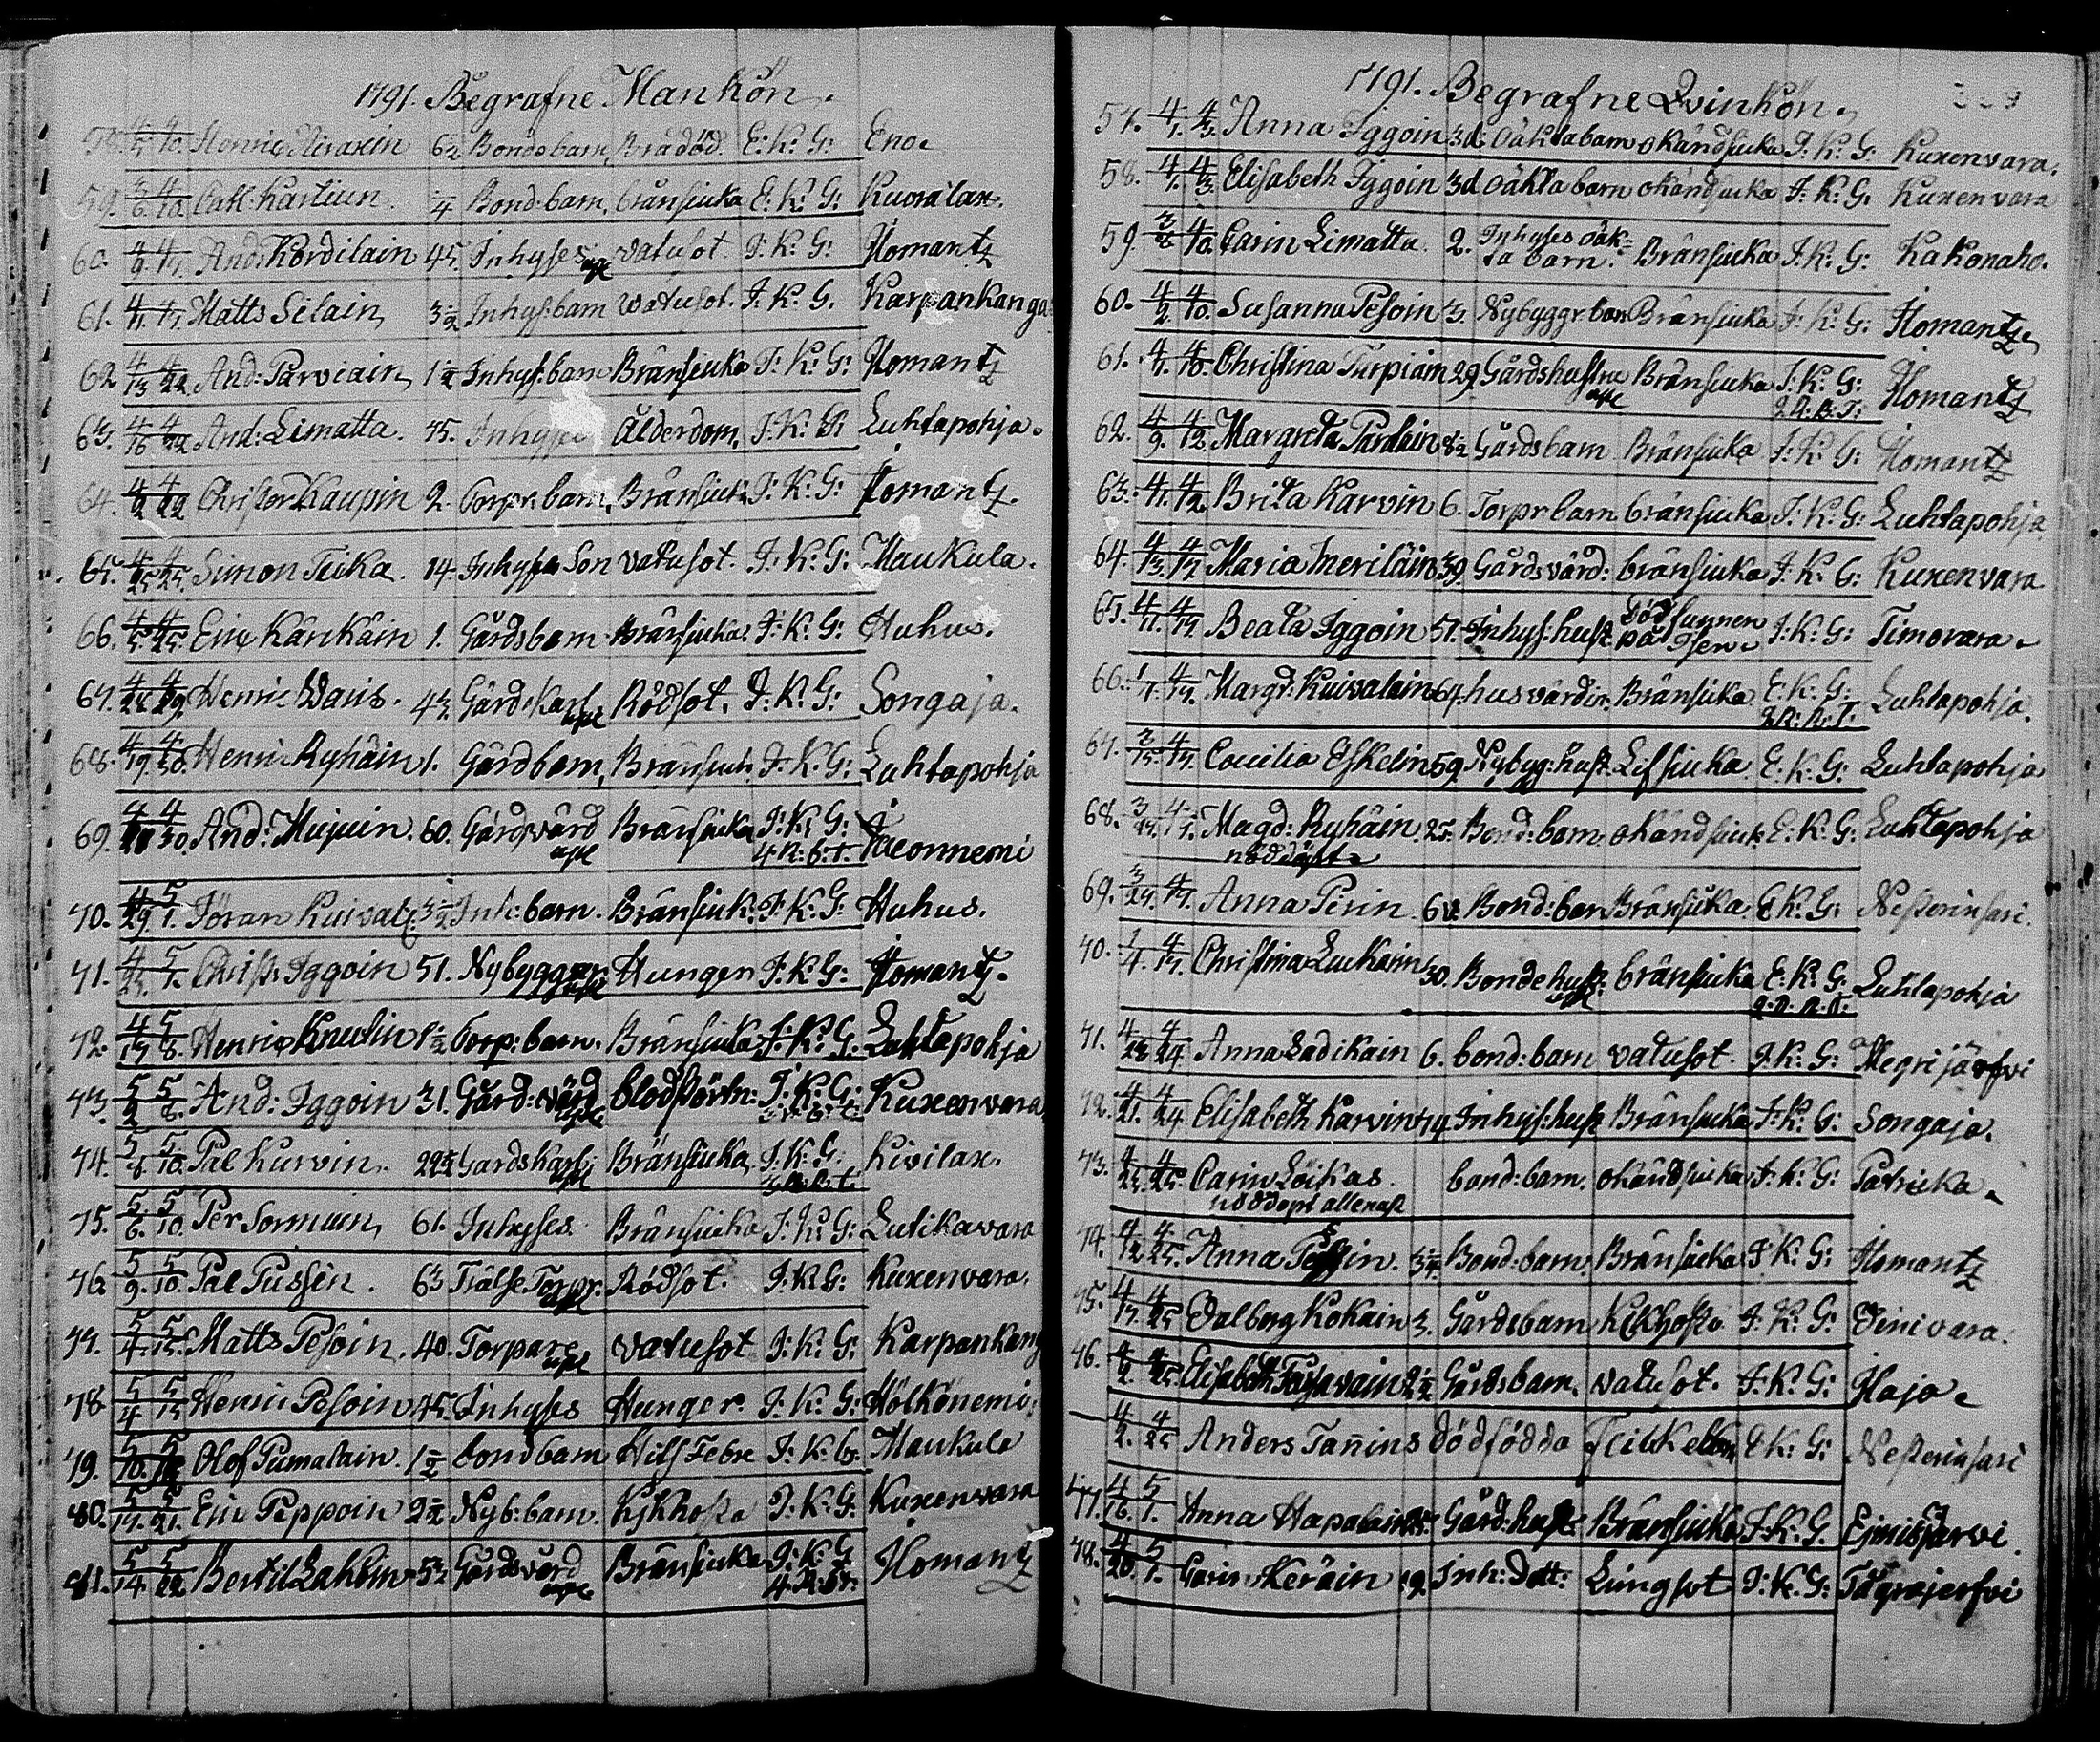 1791. Begrafne Mankön.
58. 4/5 4/10. Henric Hiraxin 6 1/2 Bondsbarn Brådöd. E: K: G: Eno.
59. 3/6. 4/10. Carl: Kartiun. 1/4 Bond: barn. brånsiuka E: K: G: Kuorilax.
60. 4/9. 4/17. And: Kordilain 45. Inhyses upl vatusot. I: K: G: Ilomantz
61. 4/11. 4/17. Matts Silain 3 1/2 Inhys: barn vatusot. I: K: G. Karpankanga:
62 4/13 4/22. And: Parviain 1 1/2 Inhys: barn Brånsiuka I: K: G: Ilomantz
63. 4/16 4/22 And: Limatta. 75. Inhyses Ålderdom, I: K: G: Luhtapohja.
64. 4/2 4/22 Christer Kaupin 2. Torpr: barn, Brånsiuk: I: K: G: Ilomantz.
65. 4/25 4/25. Simon Tiika. 14. Inhyses Son vatusot. I: K: G: Maukula.
66. 4/5. 4/25. Eric Kårkåin 1. Gårdsbarn. Brånsiuka. I: K: G: Huhus.
67. 4/24 4/29. Henric Varis. 43. Gårds Karl upl Rödsot. I: K: G: Songaja.
68. 4/19. 4/30. Henric Ryhåin 1. Gårdbarn, Brånsiuk. I: K: G: Luhtapohja
69. 4/30. And: Mujuin. 60. Gårdsvård upl Brånsiuka I: K: G: 4. R: b: t. Ilaonnemi
70. 4/29. 5/1. Jöran Kuival: 3 1/2 Inh: barn. Brånsiuk: I: K: G: Huhus.
71. 4/25. 5/1. Christ: Iggoin 51. Nybyggare upl Hunger I: K: G: Ilomantz.
72. 4/17 5/8. Henric Knutin 1 1/2 Torp: barn. Brånsiuka I: K: G: Luhtapohja
73. 5/2 5/8. And: Iggoin 31. Gård: vård upl blodstörtn: I: K: G: Kuxenvara
74. 5/10. Pål Kurvin. 22 Gårds Karl: upl Brånsiuka I: K: G: Kivilax.
75. 5/6. 5/10. Per Sormuin, 61. Inhyses Brånsiuka I: K: G: Lutikavara
76. 5/9. 5/10. Pål Pussin. 63 Frälse Torpr. upl Rödsot. I: K G: Kuxenvara.
77. 5/4. 5/15. Matts Pesoin. 40. Torpare upl vatusot I: K: G: Karpankang
78. 5/4 5/15 Henric Pesoin 75. Inhyses Hunger I: K: G: Hölkönemi.
79. 5/10. Olof Pumalain. 1 1/2 bondbarn Hits Febre I: K: G. Maukula
80. 5/17. 5/21. Eric Peppoin 2 1/2 Nyb: barn. Kjkhosta I: K: G: Kuxenvara
81. 5/14. 5/22 Bertil Lahtin 52 Gårdsvård upl Brånsiuka I: K: G 4. R: Ilomantz
1791. Begrafne Qvinkön.
57. 4/1. 4/3. Anna Iggoin 3 d: oäkta barn okändsiuka I: K: G: Kuxenvara.
58. 4/1. 4/3. Elisabeth Iggoin 3 d oäkta barn okändsiuka I: K: G. Kuxenvara
59. 3/28 4/10. Carin Limatta. 2. Inhyses oäk=ta barn. Brånsiuka I: K: G: Kakonaho.
60. 4/2. 4/10. Susanna Pesoin 3. Nybyggr barn Brånsiuka I: K: G: Ilomantz.
61. 4/7. 4/10. Christina Turpiain 29 Gårdshustru upl Brånsiuka I: K: G: 2 R: B: T: Ilomantz
62. 4/9. 4/12. Margreta Pardain 8 1/2 Gårdsbarn Brånsiuka I: K: G: Ilomantz
63. 4/11. 4/12. Brita Karvin 6. Torpr barn brånsiuka I: K: G: Luhtapohja.
64. 4/13. 4/17 Maria Meriläin 39. Gårdsvård: brånsiuka I: K: G: Kuxenvara
65. 4/11. 4/17 Beata Iggoin 51. Inhys: hust. Död funnen på Isen. I: K: G: Timovara.
66. 1/7. 4/17. Margd: Kuivalain 64. husvårdin: Brånsiuka E: K: G: Luhtapohja.
67. 2/15. 4/17. Caecilia Eskelin 59 Nybyg: hust. Lefsiuka E: K: G: Luhtapohja
68. 3/17. 4/17. Magd: Ryhåin 25. Bond: barn okändsiuk: E: K: G: Luhtapohja
nöddöpt
69. 3/24. 4/17. Anna Pirin. 6 Bond: barn Brånsiuka E K: G: Nesterinsari.
70. 1/4. 4/17. Christina Luckain 30. Bonde hust: upl brånsiuka E: K: G: Luhtapohja
71. 4/23 4/24. Anna Ladikain 6. bond: barn vatusot. I: K: G: Megrijärfvi
72. 4/21. 4/24 Elisabeth Karvin 74 Inhys: hust Brånsiuka I: K: G: Songaja.
73. 4/25. 4/25. Carin Löikas. bond: barn. okändsiuka I: K: G: Patricka.
nöddöpt allenast
74. 4/12 4/25. Anna Pessin. 3/4. Bond: barn. Brånsiuka I: K: G: Ilomantz
75. 4/17. 4/25 Valborg Kokain 3. Gårdsbarn Kikhosta I: K: G: Oinivara.
76. 4/2 4/25 Elisabeth 2 1/2 Gårdsbarn. vatusot. I: K: G: Ilaja.
4/2. 4/25 Anders Tan̄ins dödfödda flickebarn E K: G: Nesterinsari
77. 4/16. 5/1. Anna Hapalain Gård: hust Brånsiuka I: K: G. Ejmisjarvi.
78. 4/20. 5/1. Carin Keråin 19. Inh: Dott: Lungsot I: K. G: Tågrajerfvi